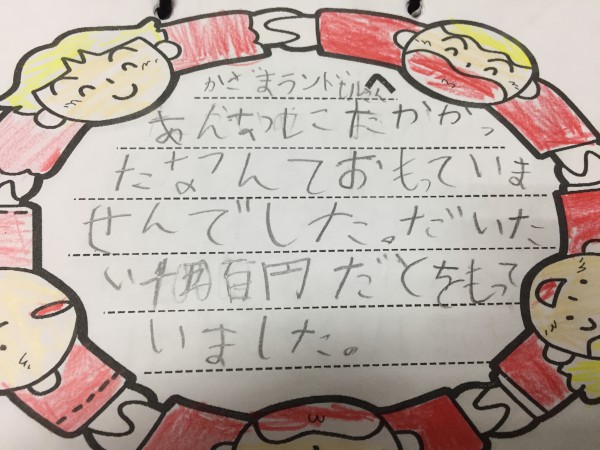 かざまランドセルへ
あんなにたかかっ
たなんておもっていま
せんでした。だいた
い千四百円だとをもって
いました。